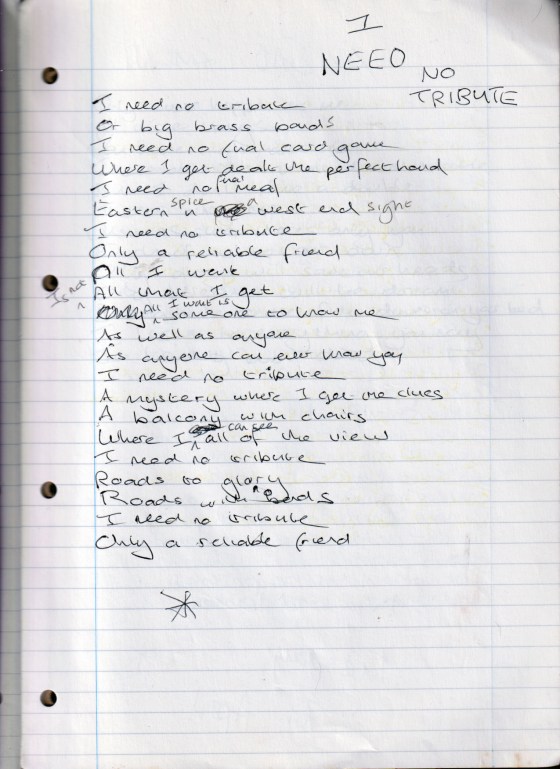 I
NEED
NO
TRIBUTE
I need no tribute
Or big brass bands
I need no final card game
Where I get dealt the perfect hand
I need no final meal
Eastern spice n a west end sight
I need no tribute
Only a reliable friend
All I want
Is not All what I get
All I want is someone to know me
As well as anyone
As anyone can ever know you
I need no tribute
A mystery where I get the clues
A balcony with chairs
Where I can see all of the view
I need no tribute
Roads to glory
Roads with bends
I need no tribute
Only a reliable friend